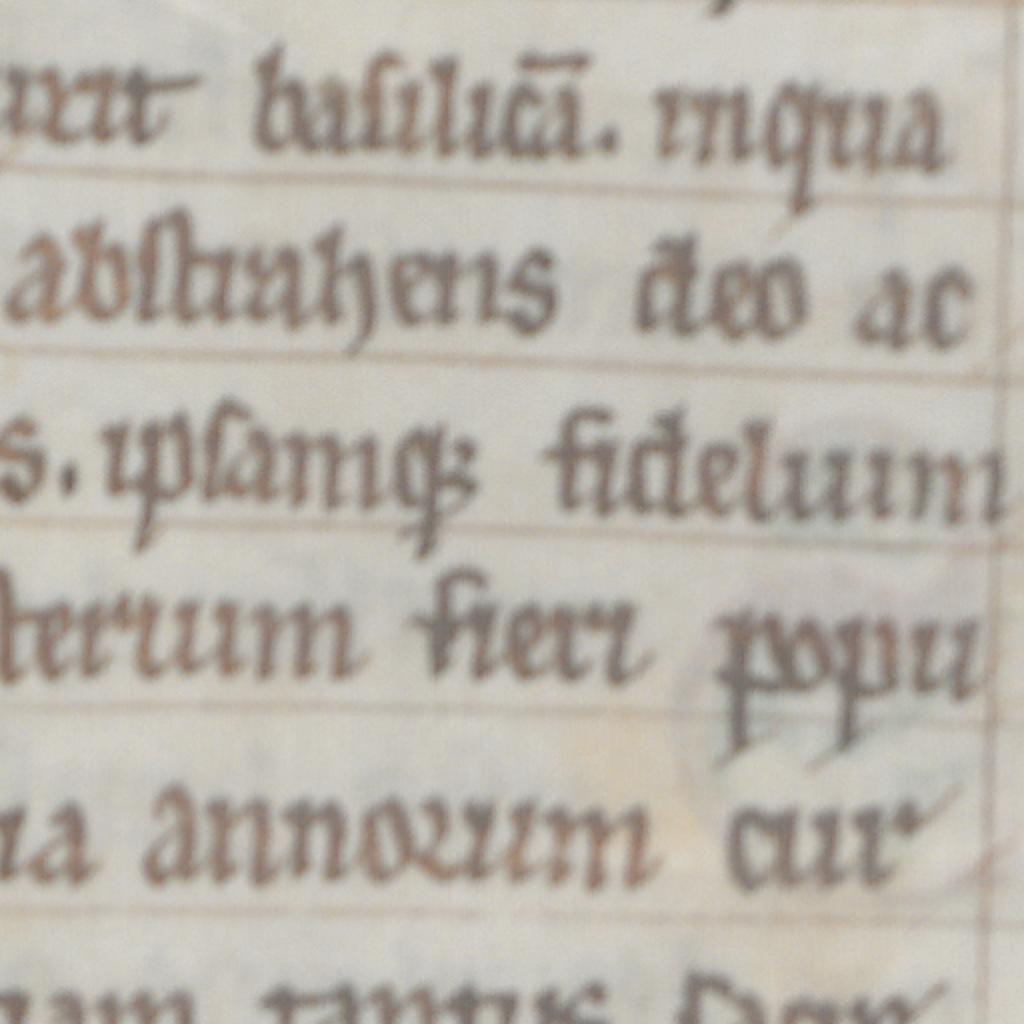 basilicā. inqua
abstrahens deo ac
s. ipsamq; fidelium
terium fieri popu
annorum cur
tantus